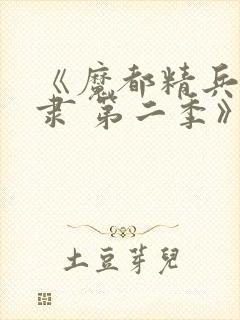 《魔都精兵
隶 第二季》
土豆芽兒